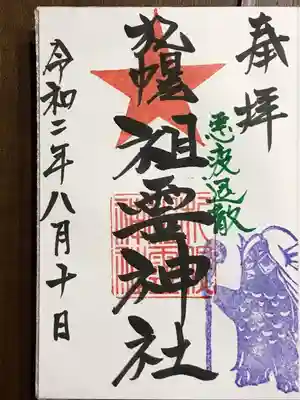 奉拝
悪疫退散
札幌祖霊神社
令和二年八月十日